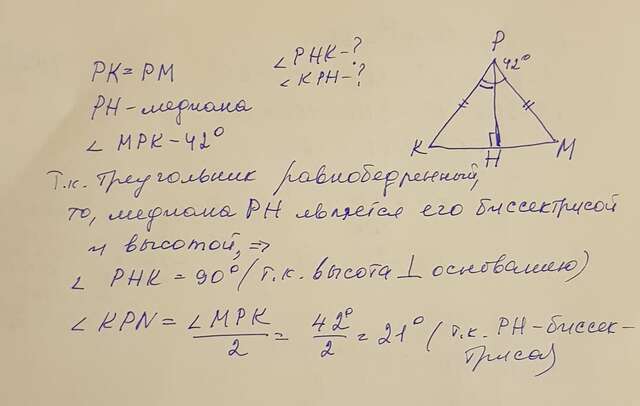 PK = PM
PH - медиана
∠ MPK - 42°
∠ PHK - ?
∠ KPH - ?
P
42°
K
H
M
Т.к. треугольник равнобедренный,
то, медиана PH является его биссектрисой
и высотой, ⇒
∠ PHK = 90° (т.к. высота ⊥ основанию)
∠ KPN = ∠MPK/2 = 42°/2 = 21° (т.к. PH - биссек-
триса)